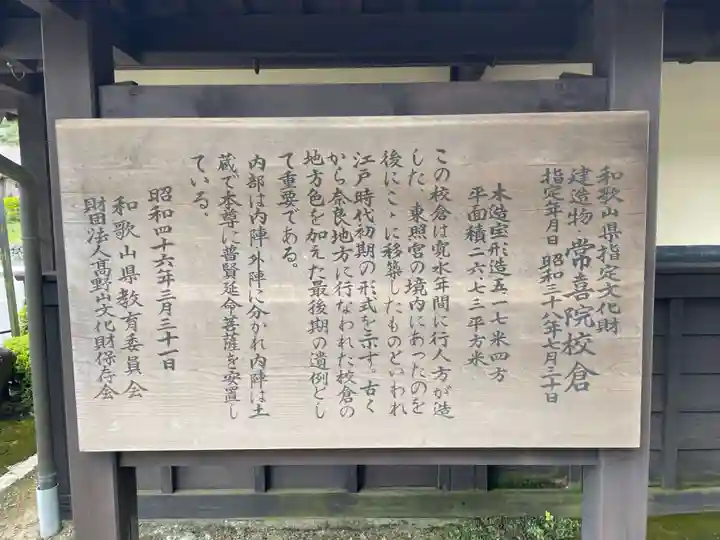 和歌山県指定文化財
建造物 常喜院校倉
指定年月日 昭和三十八年七月三十日
木造宝形造五・一七米四方
平面積二六・七三平方米
この校倉は寛永年間に行人方が造
した、東照宮の境内にあったのを
後にここに移築したものといわれ
江戸時代初期の形式を示す。古く
から奈良地方に行なわれた校倉の
地方色を加えた最後期の遺例とし
て重要である。
内部は内陣、外陣に分かれ内陣は土
蔵で本尊に普賢延命菩薩を安置し
ている。
昭和四十六年三月三十一日
和歌山県教育委員会
財団法人高野山文化財保存会